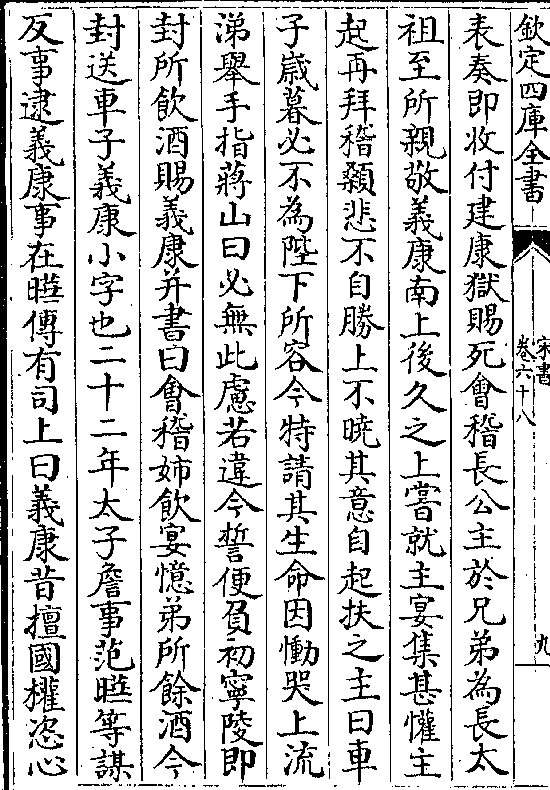 欽定四庫全書
宋書
卷六十八
九
表奏即收付建康獄賜死會稽長公主於兄弟為長太
祖至所親敬義康南上後久之上嘗就主宴集甚懽主
起再拜稽顙悲不自勝上不曉其意自起扶之主曰車
子嵗暮必不為陛下所容今特請其生命因慟哭上流
涕舉手指蔣山曰必無此慮若違今誓便負初寧陵即
封所飲酒賜義康并書曰會稽姉飲宴憶弟所餘酒今
封送車子義康小字也二十二年太子詹事范曄等謀
反事逮義康事在曄傳有司上曰義康昔擅國權恣心